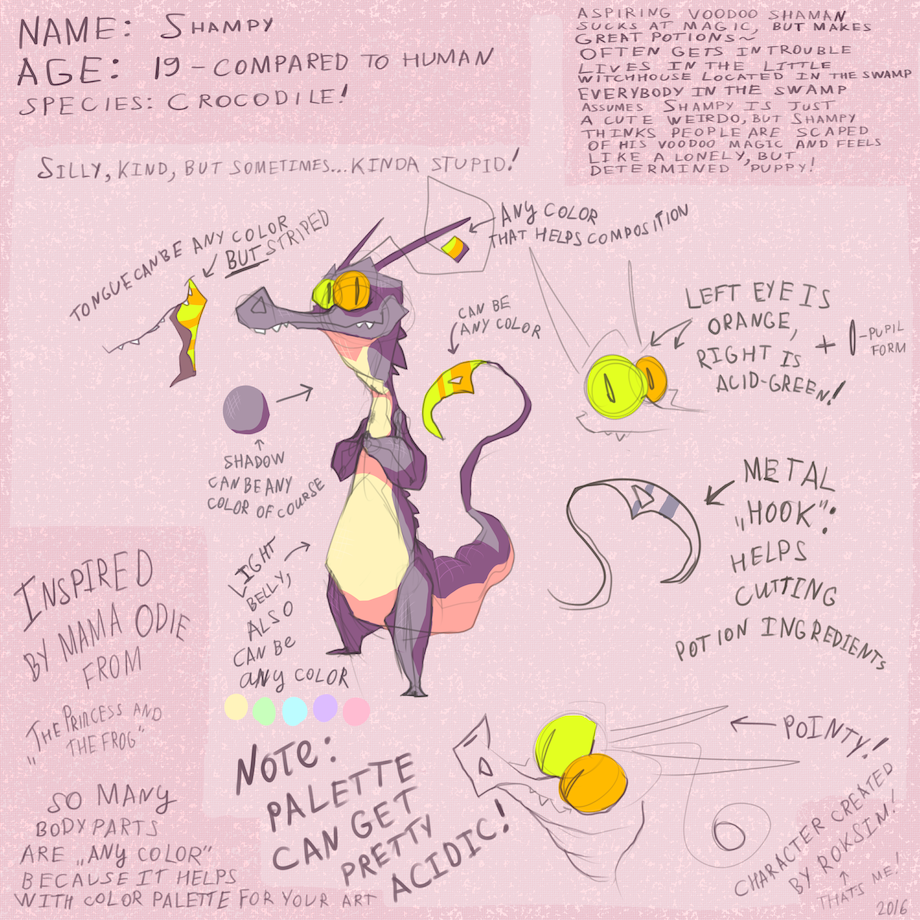 NAME: SHAMPY
AGE: 19 - COMPARED TO HUMAN
SPECIES: CROCODILE!
ASPIRING VOODOO SHAMAN
SUCKS AT MAGIC, BUT MAKES
GREAT POTIONS~
OFTEN GETS IN TROUBLE
LIVES IN THE LITTLE
WITCHHOUSE LOCATED IN THE SWAMP
EVERYBODY IN THE SWAMP
ASSUMES SHAMPY IS JUST
A CUTE WEIRDO, BUT SHAMPY
THINKS PEOPLE ARE SCAPED
OF HIS VOODOO MAGIC AND FEELS
LIKE A LONELY, BUT
DETERMINED PUPPY!
SILLY, KIND, BUT SOMETIMES... KINDA STUPID!
TONGUE CAN BE ANY COLOR
BUT STRIPED
ANY COLOR
THAT HELPS COMPOSITION
CAN BE
ANY COLOR
LEFT EYE IS
ORANGE,
RIGHT IS
ACID-GREEN!
+ 0 - PUPIL
FORM
SHADOW
CAN BE ANY
COLOR OF COURSE
METAL
„HOOK":
HELPS
CUTTING
POTION INGREDIENTS
LIGHT
BELLY,
ALSO
CAN BE
ANY COLOR
INSPIRED
BY MAMA ODIE
FROM
„THE PRINCESS AND
THE FROG"
NOTE:
PALETTE
CAN GET
PRETTY
ACIDIC!
POINTY!
SO MANY
BODY PARTS
ARE „ANY COLOR"
BECAUSE IT HELPS
WITH COLOR PALETTE FOR YOUR ART
CHARACTER CREATED
BY ROKSIM!
THATS ME!
2016